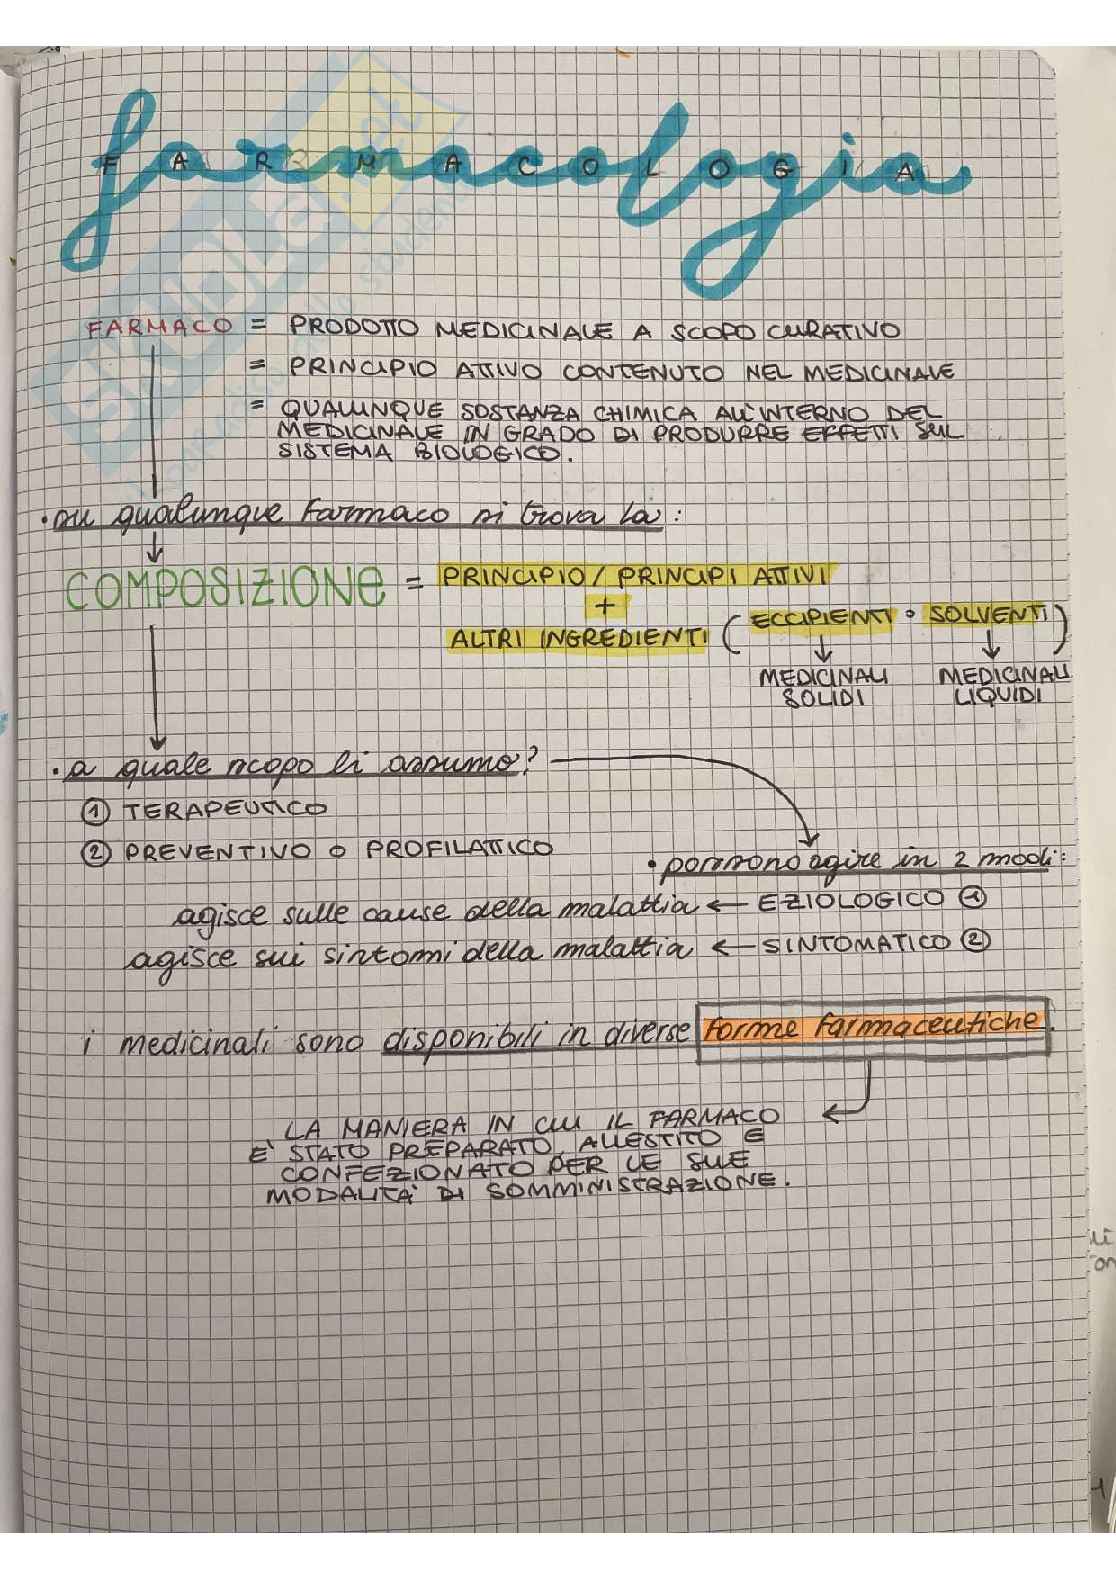 farmacologia
F A R M A C O L O G I A
FARMACO = PRODOTTO MEDICINALE A SCOPO CURATIVO
= PRINCIPIO ATTIVO CONTENUTO NEL MEDICINALE
= QUALUNQUE SOSTANZA CHIMICA ALL'INTERNO DEL
MEDICINALE IN GRADO DI PRODURRE EFFETTI SUL
SISTEMA BIOLOGICO.
• su qualunque farmaco si trova la:
COMPOSIZIONE = PRINCIPIO/PRINCIPI ATTIVI
+
ALTRI INGREDIENTI (ECCIPIENTI o SOLVENTI)
MEDICINALI SOLIDI
MEDICINALI LIQUIDI
• a quale scopo li assumo?
① TERAPEUTICO
② PREVENTIVO O PROFILATTICO
• possono agire in 2 modi:
agisce sulle cause della malattia ← EZIOLOGICO ①
agisce sui sintomi della malattia ← SINTOMATICO ②
i medicinali sono disponibili in diverse forme farmaceutiche.
LA MANIERA IN CUI IL FARMACO
E' STATO PREPARATO, ALLESTITO E
CONFEZIONATO PER LE SUE
MODALITA' DI SOMMINISTRAZIONE.